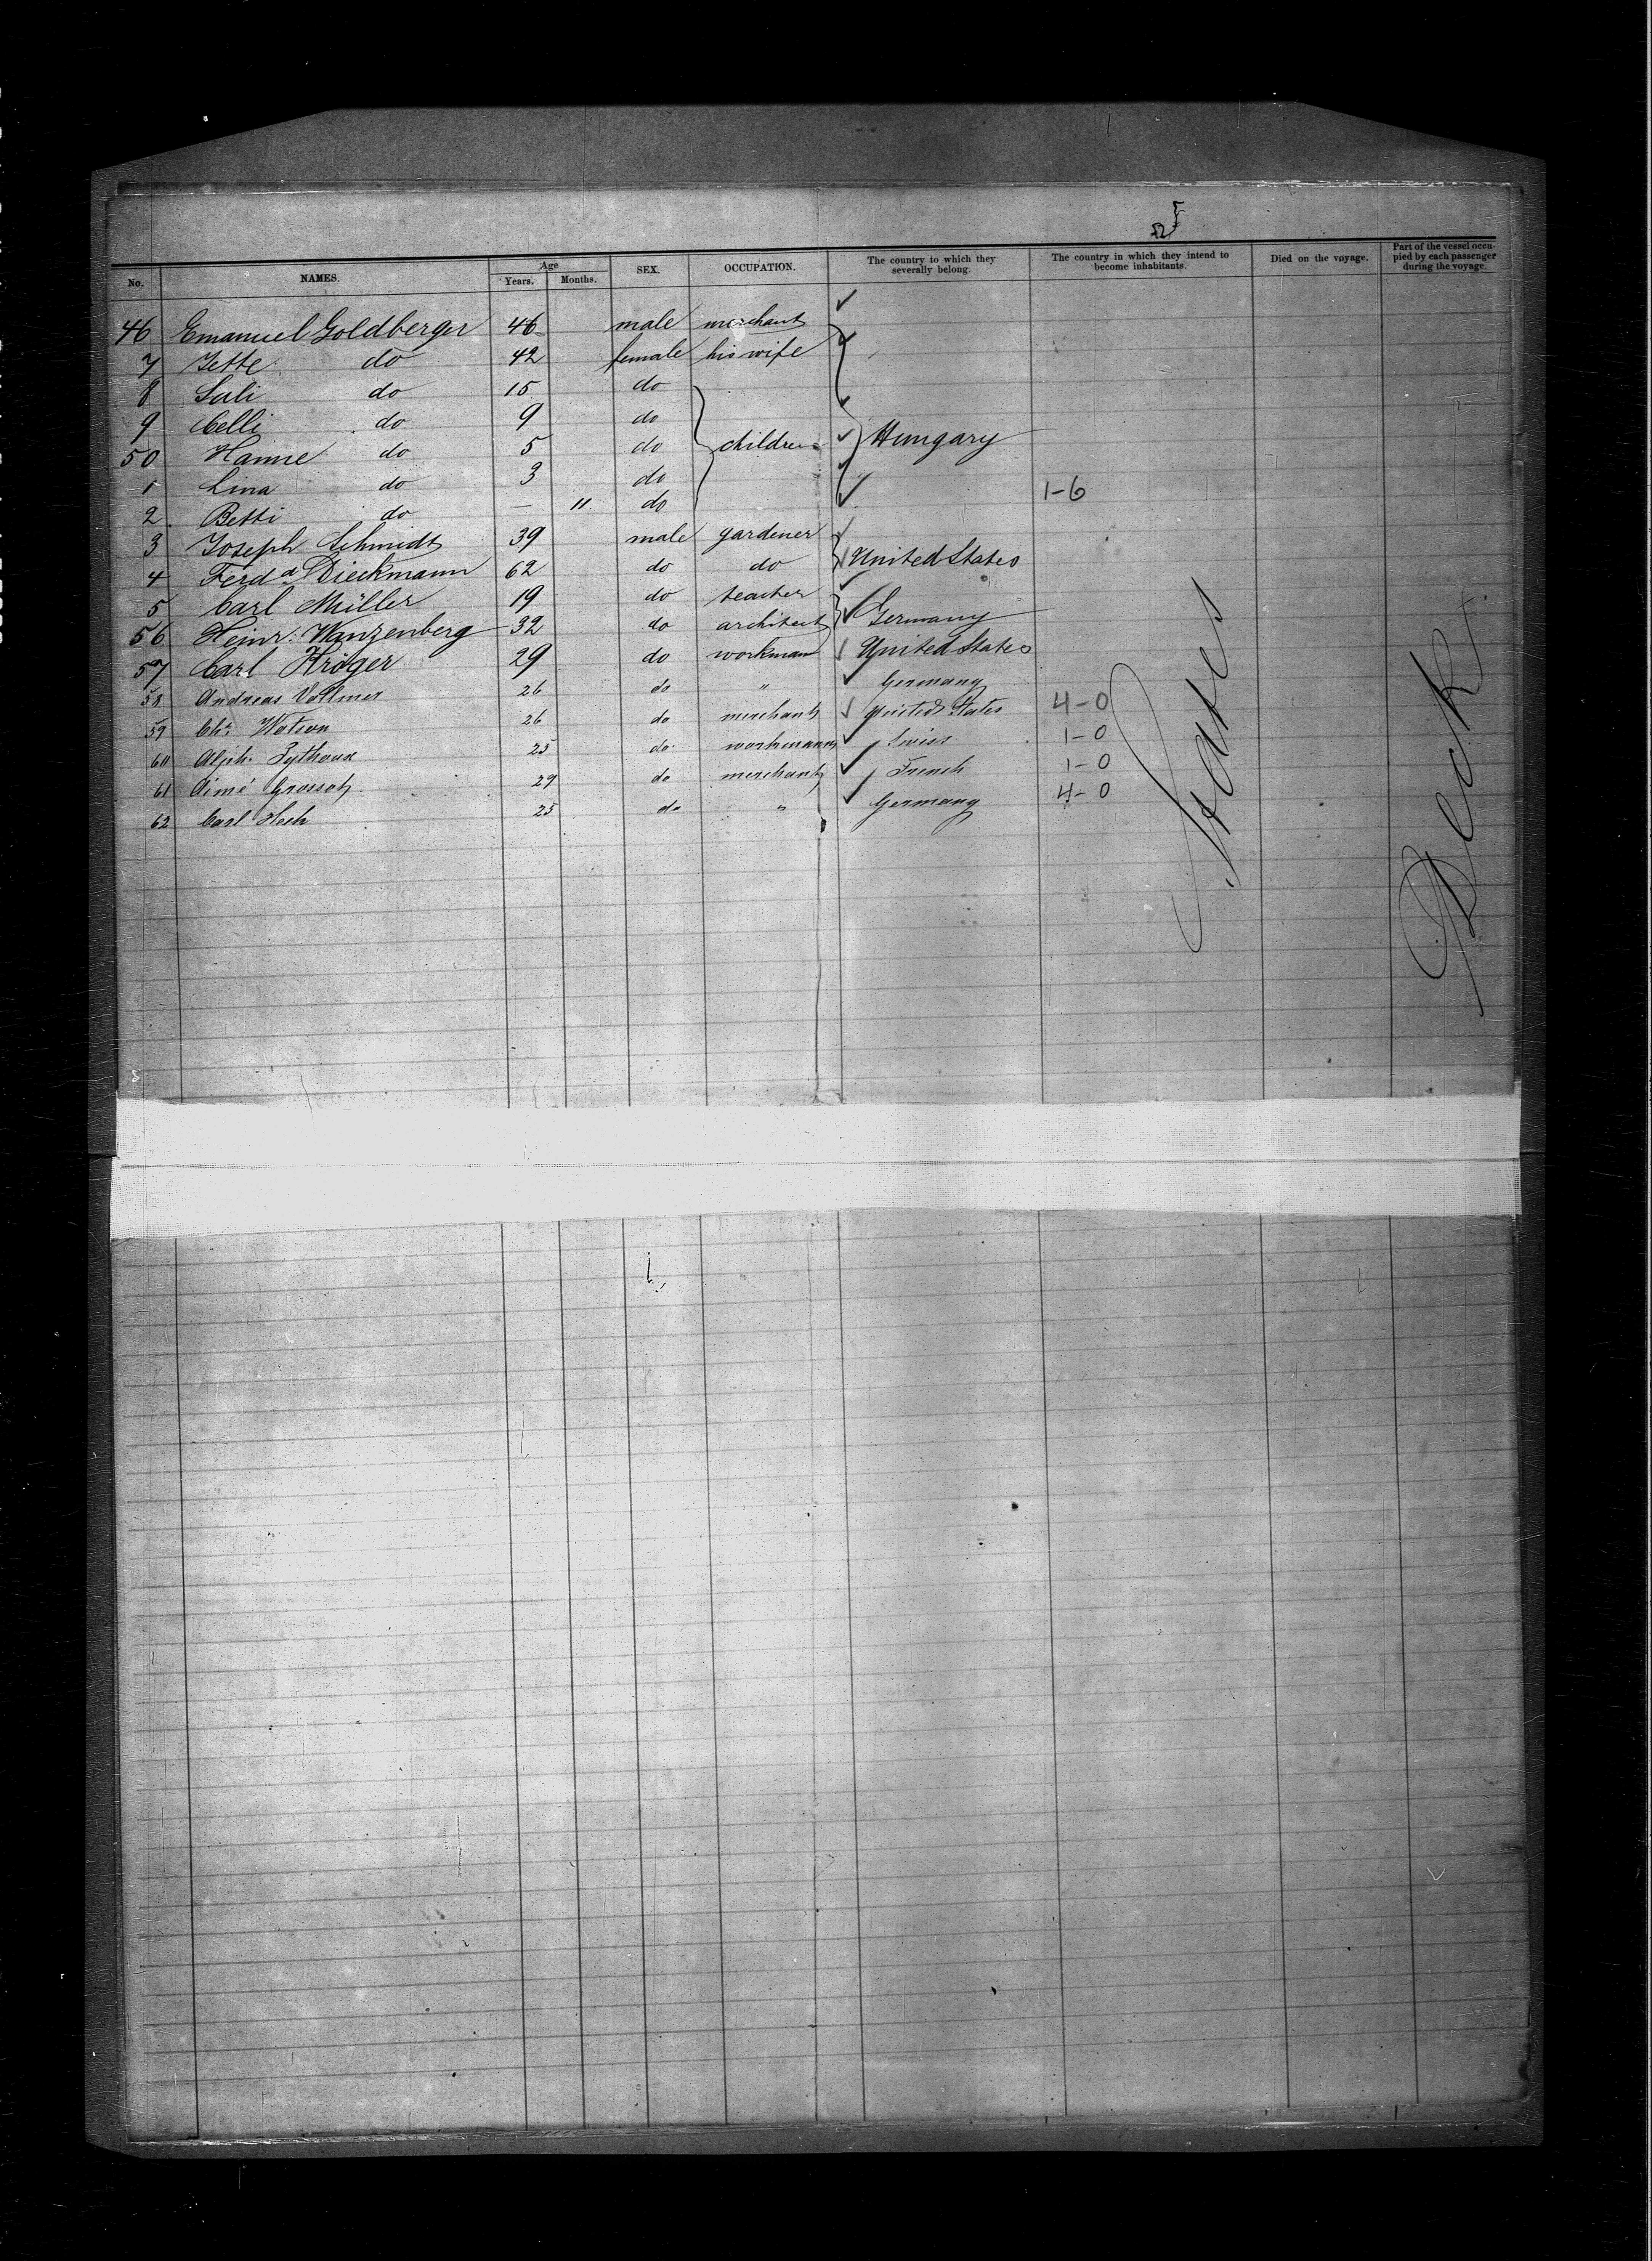 No. NAMES. Age Years. Months. SEX. OCCUPATION. The country to which they severally belong. The country in which they intend to become inhabitants. Died on the voyage. Part of the vessel occupied by each passenger during the voyage.
46 Emanuel Goldberger 46 male merchant
7 Jette do 42 female his wife
8 Sali do 15 do
9 Celli do 9 do
50 Hanne do 5 do children Hungary
1 Lina do 3 do
2 Betti do — 11 do 1-6
3 Joseph Schmidt 39 male gardener
4 Ferdd Dieckmann 62 do do United States
5 Carl Müller 19 do teacher
56 Heinr. Wanzenberg 32 do architect Germany
57 Carl Kröger 29 do workman United States
58 Andreas Vollmer 26 do " Germany
59 Chs. Watson 26 do merchant United States 4-0
60 Alph. 25 do workmann Swiss 1-0
61 Aimé 29 do merchant French 1-0
62 Carl Hech 25 do " Germany 4-0
States
Deck